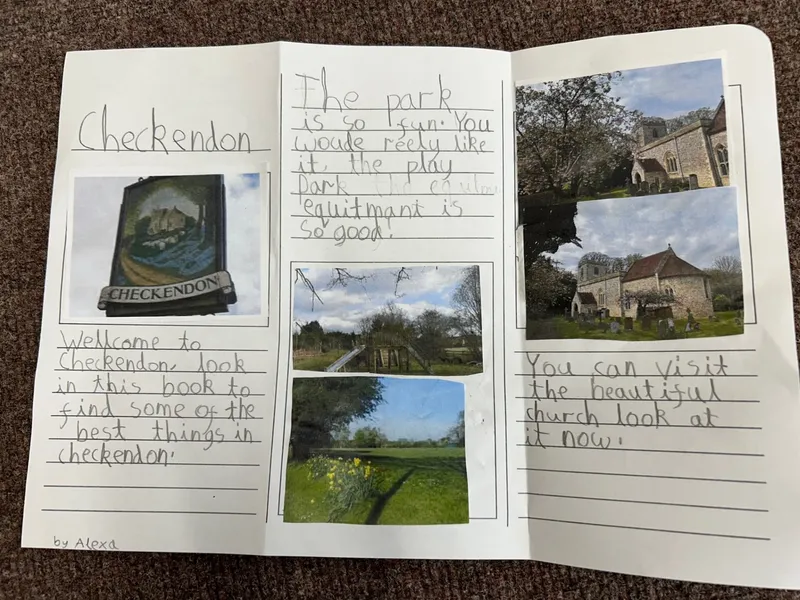 Checkendon
CHECKENDON
Wellcome to
Checkendon, look
in this book to
find some of the
best things in
checkendon.
by Alexa
The park
is so fun. You
woude reely like
it, the play
park the
equitmant is
so good!
You can visit
the beautiful
church look at
it now.